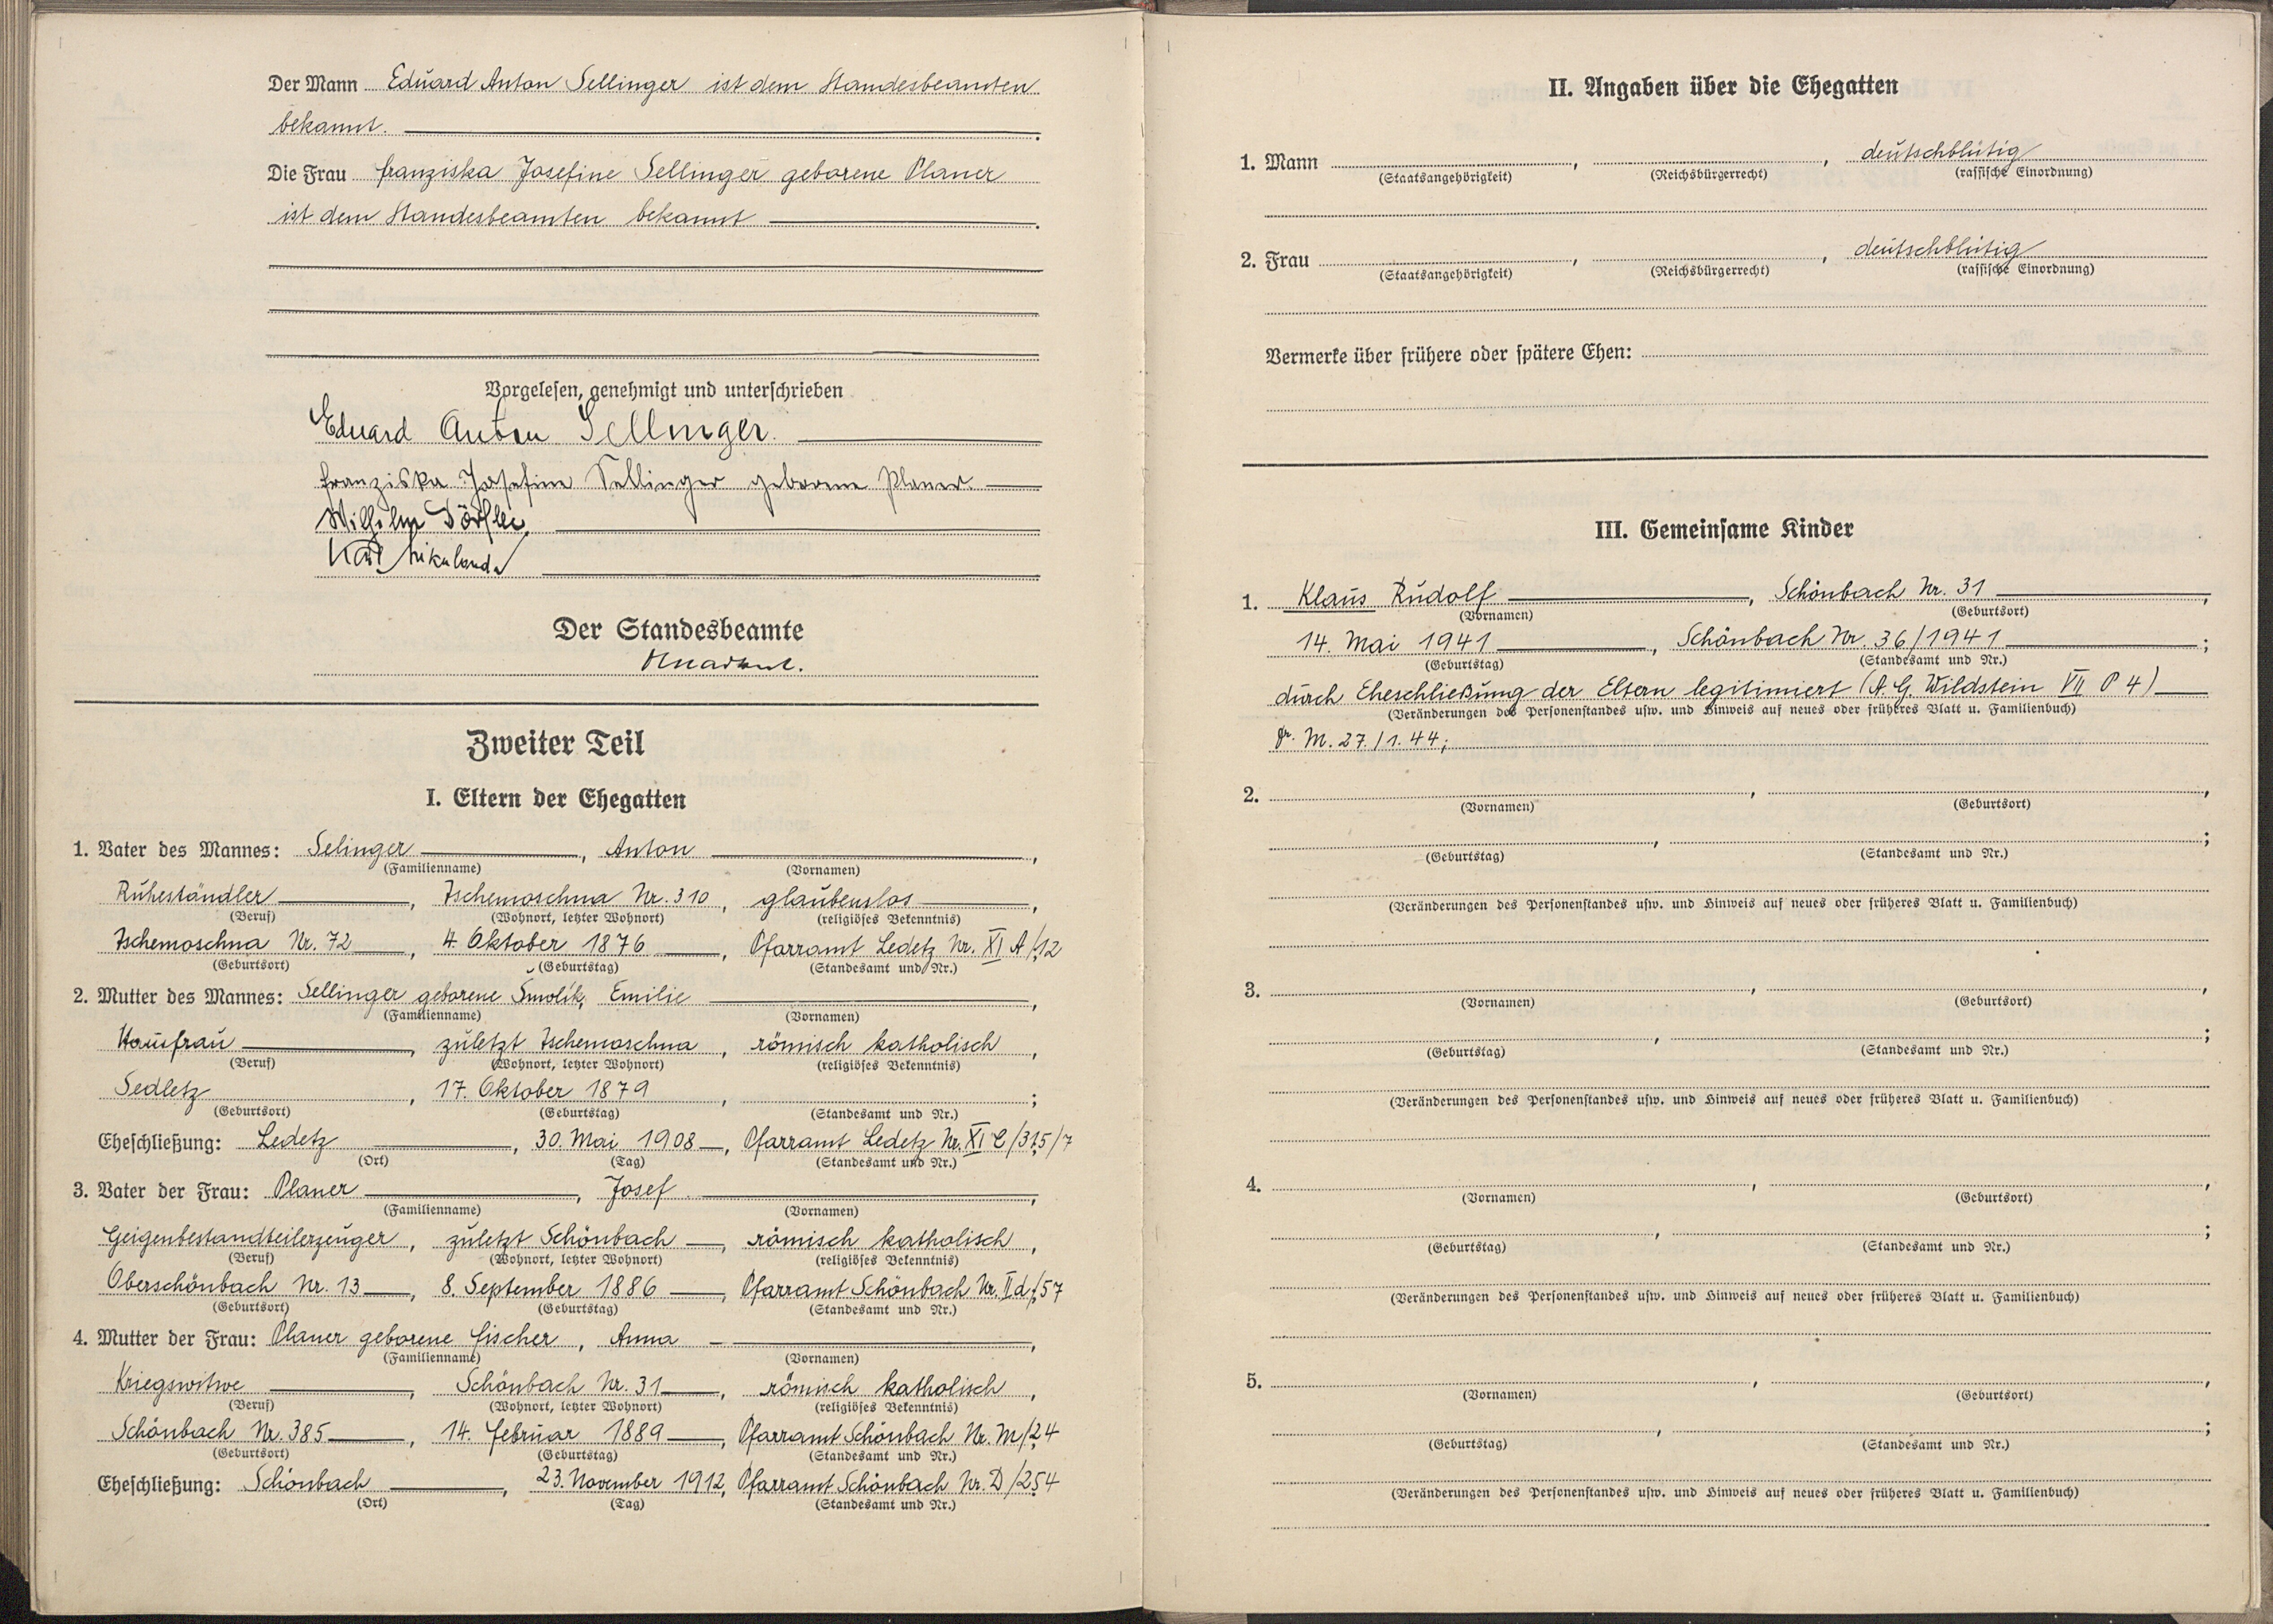 Der Mann Eduard Anton Sellinger ist dem Standesbeamten
bekannt.
Die Frau Franziska Josefine Sellinger geborene Planer
ist dem Standesbeamten bekannt
Vorgelesen, genehmigt und unterschrieben
Eduard Anton Sellinger.
Franziska Josefine Sellinger geborene Planer
Wilhelm Dörfler
Karl
Der Standesbeamte
Zweiter Teil
I. Eltern der Ehegatten
1. Vater des Mannes: Selinger, Anton,
(Familienname) (Vornamen)
Ruheständler, Tschemoschna Nr. 310, glaubenslos,
(Beruf) (Wohnort, letzter Wohnort) (religiöses Bekenntnis)
Tschemoschna Nr. 72, 4. Oktober 1876, Pfarramt Ledetz Nr. XI A/12
(Geburtsort) (Geburtstag) (Standesamt und Nr.)
2. Mutter des Mannes: Sellinger geborene Šmolík, Emilie,
(Familienname) (Vornamen)
Hausfrau, zuletzt Tschemoschna, römisch katholisch,
(Beruf) (Wohnort, letzter Wohnort) (religiöses Bekenntnis)
Sedletz, 17. Oktober 1879, ;
(Geburtsort) (Geburtstag) (Standesamt und Nr.)
Eheschließung: Ledetz, 30. Mai 1908, Pfarramt Ledetz Nr. XI C/315/7
(Ort) (Tag) (Standesamt und Nr.)
3. Vater der Frau: Planer, Josef,
(Familienname) (Vornamen)
Geigenbestandteilerzeuger, zuletzt Schönbach, römisch katholisch,
(Beruf) (Wohnort, letzter Wohnort) (religiöses Bekenntnis)
Oberschönbach Nr. 13, 8. September 1886, Pfarramt Schönbach Nr. II d/57
(Geburtsort) (Geburtstag) (Standesamt und Nr.)
4. Mutter der Frau: Planer geborene Fischer, Anna,
(Familienname) (Vornamen)
Kriegswitwe, Schönbach Nr. 31, römisch katholisch,
(Beruf) (Wohnort, letzter Wohnort) (religiöses Bekenntnis)
Schönbach Nr. 385, 14. Februar 1889, Pfarramt Schönbach Nr. M/24
(Geburtsort) (Geburtstag) (Standesamt und Nr.)
Eheschließung: Schönbach, 23. November 1912, Pfarramt Schönbach Nr. D/254
(Ort) (Tag) (Standesamt und Nr.)
II. Angaben über die Ehegatten
1. Mann , , deutschblütig
(Staatsangehörigkeit) (Reichsbürgerrecht) (rassische Einordnung)
2. Frau , , deutschblütig
(Staatsangehörigkeit) (Reichsbürgerrecht) (rassische Einordnung)
Vermerke über frühere oder spätere Ehen:
III. Gemeinsame Kinder
1. Klaus Rudolf, Schönbach Nr. 31,
(Vornamen) (Geburtsort)
14. Mai 1941, Schönbach Nr. 36/1941;
(Geburtstag) (Standesamt und Nr.)
durch Eheschließung der Eltern legitimiert (A. G. Wildstein VII P 4)
(Veränderungen des Personenstandes usw. und Hinweis auf neues oder früheres Blatt u. Familienbuch)
M. 27./1. 44;
2. , ,
(Vornamen) (Geburtsort)
, ;
(Geburtstag) (Standesamt und Nr.)
(Veränderungen des Personenstandes usw. und Hinweis auf neues oder früheres Blatt u. Familienbuch)
3. , ,
(Vornamen) (Geburtsort)
, ;
(Geburtstag) (Standesamt und Nr.)
(Veränderungen des Personenstandes usw. und Hinweis auf neues oder früheres Blatt u. Familienbuch)
4. , ,
(Vornamen) (Geburtsort)
, ;
(Geburtstag) (Standesamt und Nr.)
(Veränderungen des Personenstandes usw. und Hinweis auf neues oder früheres Blatt u. Familienbuch)
5. , ,
(Vornamen) (Geburtsort)
, ;
(Geburtstag) (Standesamt und Nr.)
(Veränderungen des Personenstandes usw. und Hinweis auf neues oder früheres Blatt u. Familienbuch)